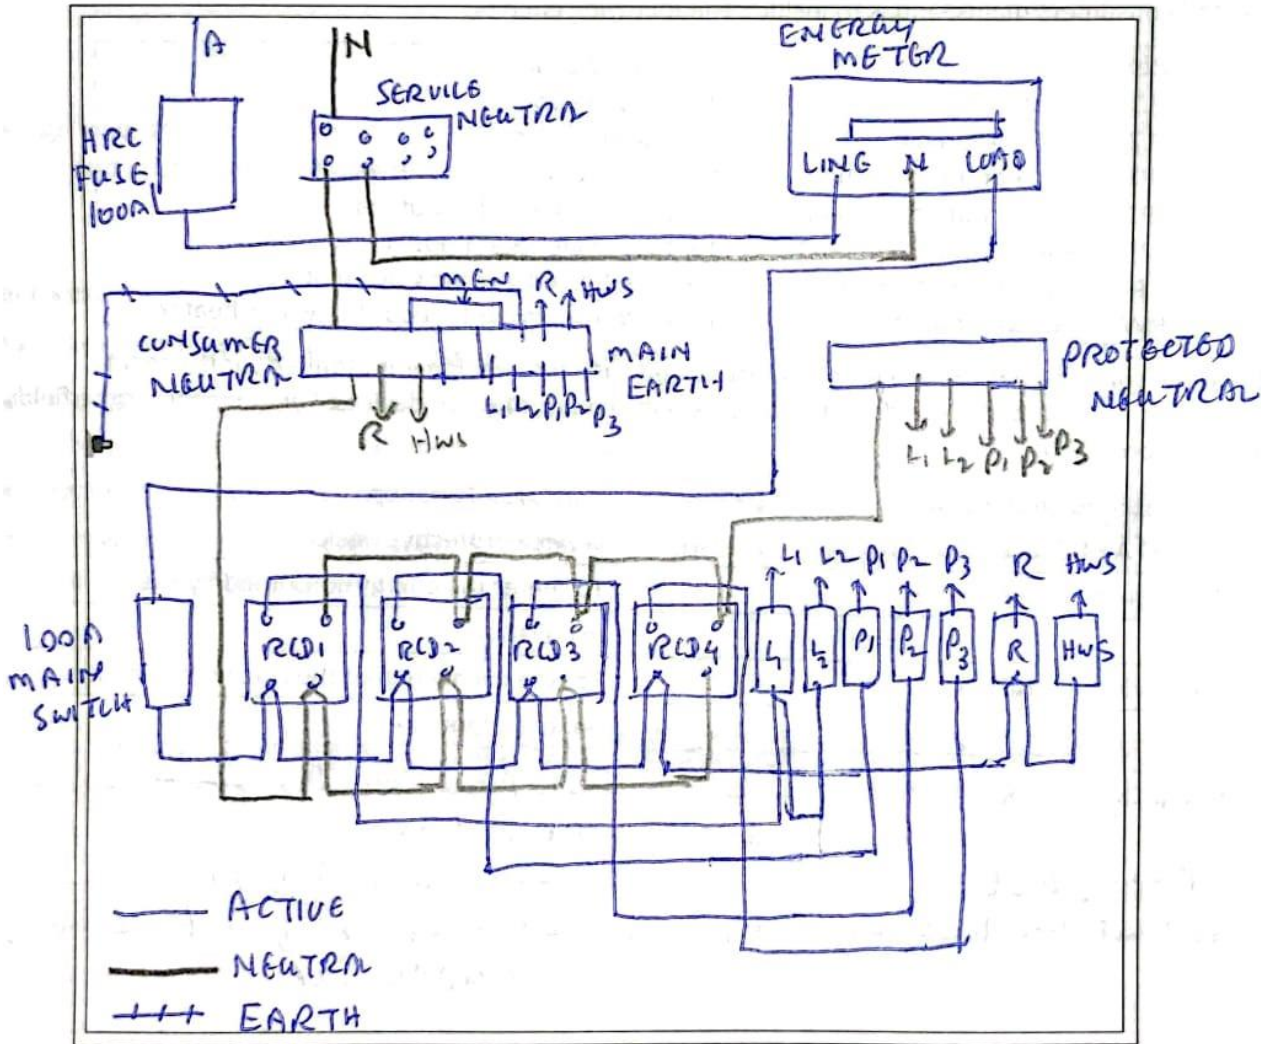 A
N
SERVICE
NEUTRAL
ENERGY
METER
HRC
FUSE
100A
LINE N LOAD
MEN R HWS
CONSUMER
NEUTRAL
MAIN
EARTH
L1 L2 P1 P2 P3
R HWS
PROTECTED
NEUTRAL
L1 L2 P1 P2 P3
L1 L2 P1 P2 P3 R HWS
100A
MAIN
SWITCH
RCD1 RCD2 RCD3 RCD4 L1 L2 P1 P2 P3 R HWS
ACTIVE
NEUTRAL
EARTH